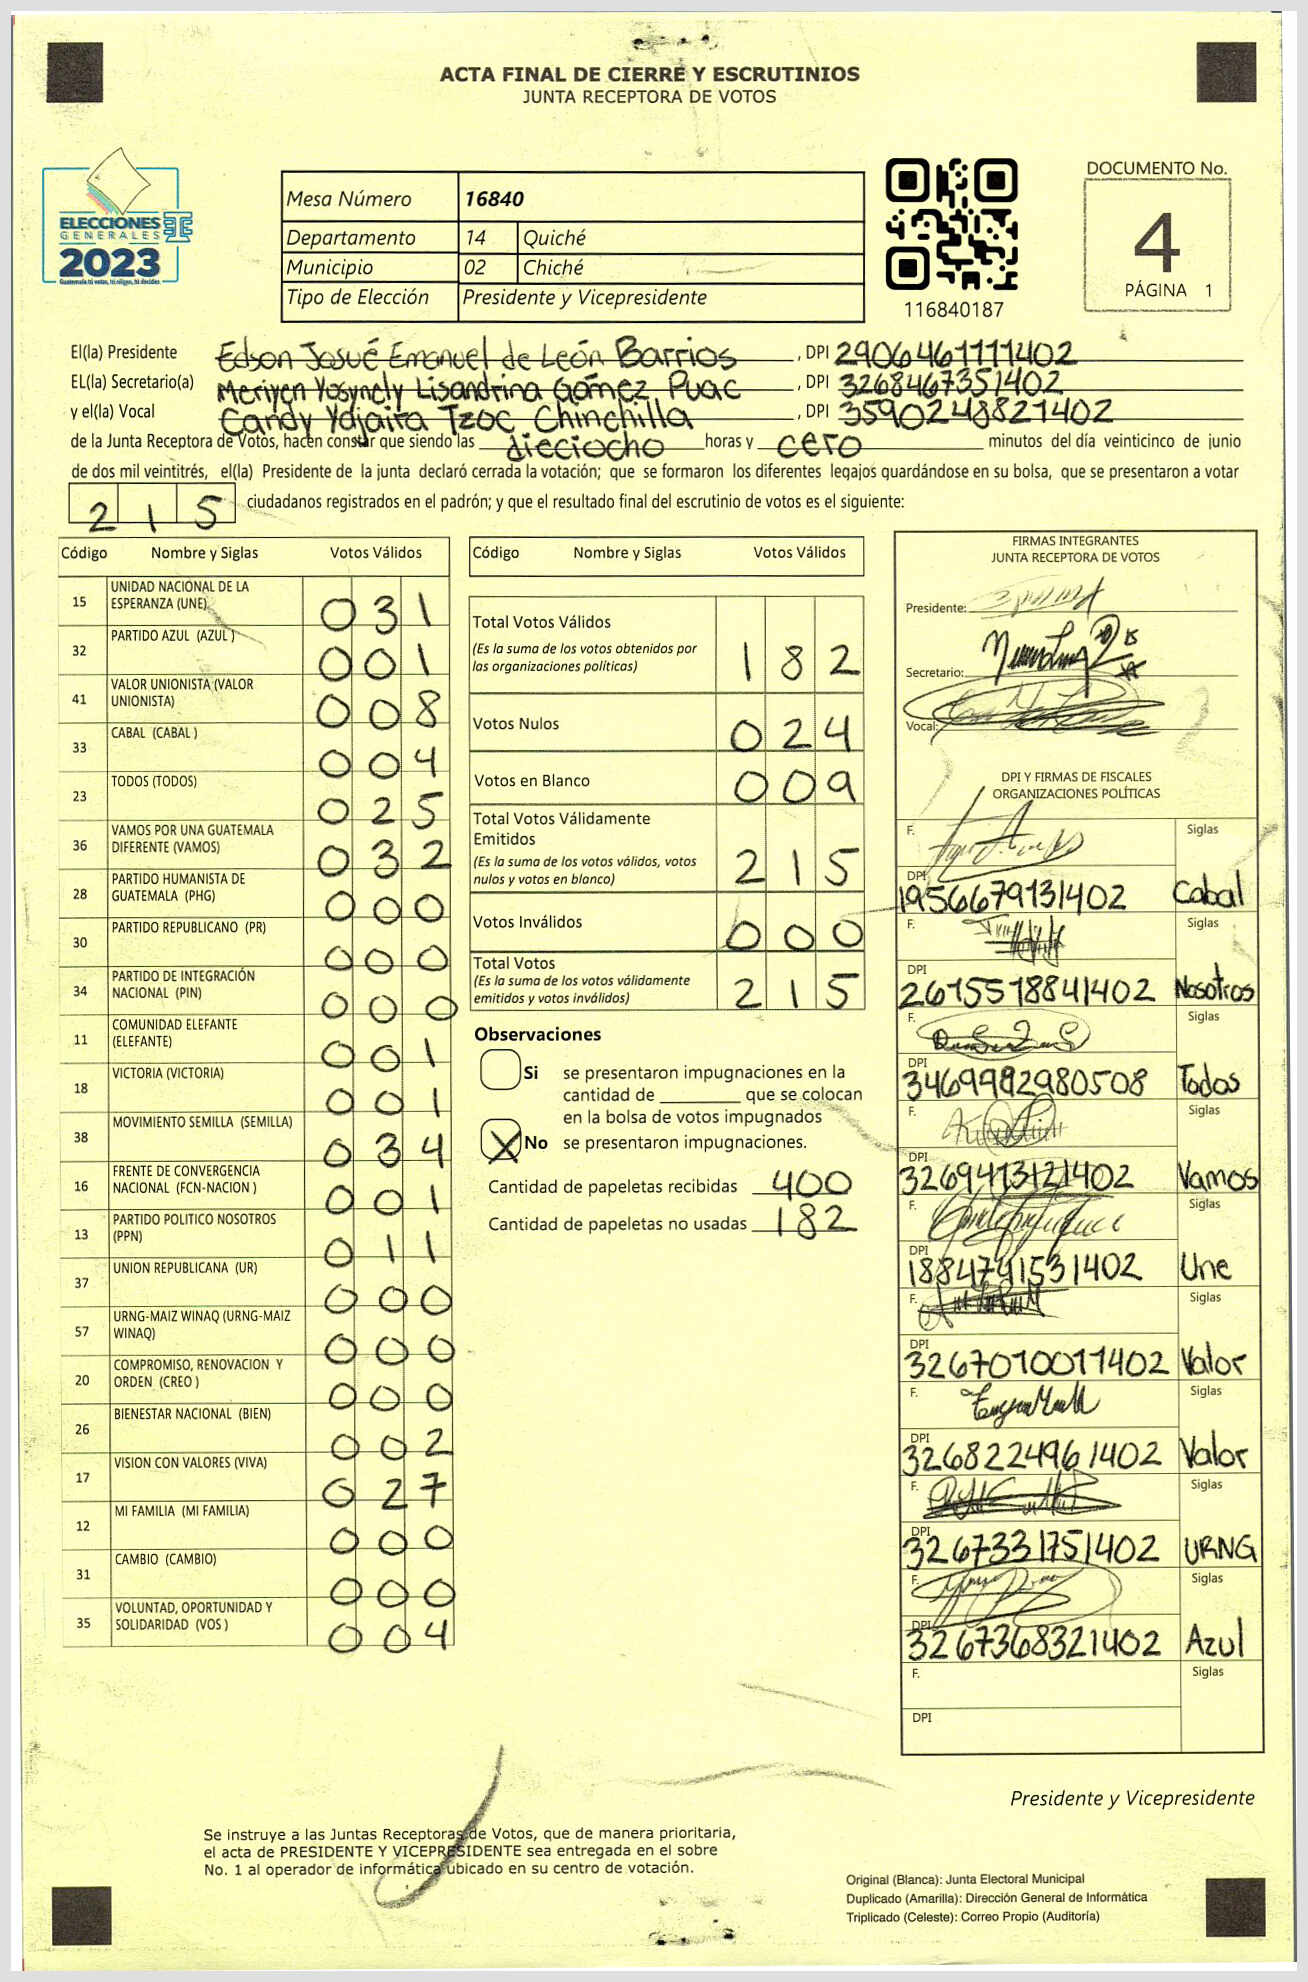 ACTA FINAL DE CIERRE Y ESCRUTINIOS
JUNTA RECEPTORA DE VOTOS
ELECCIONES
GENERALES
2023
Guatemala tú votas, tú eliges, tú decides
Mesa Número 16840
Departamento 14 Quiché
Municipio 02 Chiché
Tipo de Elección Presidente y Vicepresidente
116840187
DOCUMENTO No.
4
PÁGINA 1
El(la) Presidente Edson Josué Emanuel de León Barrios, DPI 2906461111402
EL(la) Secretario(a) Meriyen Yosynely Lisandrina Gómez Puac, DPI 3268467351402
y el(la) Vocal Candy Ydjaira Tzoc Chinchilla, DPI 3590248821402
de la Junta Receptora de Votos, hacen constar que siendo las dieciocho horas y cero minutos del día veinticinco de junio
de dos mil veintitrés, el(la) Presidente de la junta declaró cerrada la votación; que se formaron los diferentes legajos guardándose en su bolsa, que se presentaron a votar
215 ciudadanos registrados en el padrón; y que el resultado final del escrutinio de votos es el siguiente:
Código Nombre y Siglas Votos Válidos
15 UNIDAD NACIONAL DE LA ESPERANZA (UNE) 031
32 PARTIDO AZUL (AZUL ) 001
41 VALOR UNIONISTA (VALOR UNIONISTA) 008
33 CABAL (CABAL ) 004
23 TODOS (TODOS) 025
36 VAMOS POR UNA GUATEMALA DIFERENTE (VAMOS) 032
28 PARTIDO HUMANISTA DE GUATEMALA (PHG) 000
30 PARTIDO REPUBLICANO (PR) 000
34 PARTIDO DE INTEGRACIÓN NACIONAL (PIN) 000
11 COMUNIDAD ELEFANTE (ELEFANTE) 001
18 VICTORIA (VICTORIA) 001
38 MOVIMIENTO SEMILLA (SEMILLA) 034
16 FRENTE DE CONVERGENCIA NACIONAL (FCN-NACION ) 001
13 PARTIDO POLITICO NOSOTROS (PPN) 011
37 UNION REPUBLICANA (UR) 000
57 URNG-MAIZ WINAQ (URNG-MAIZ WINAQ) 000
20 COMPROMISO, RENOVACION Y ORDEN (CREO ) 000
26 BIENESTAR NACIONAL (BIEN) 002
17 VISION CON VALORES (VIVA) 027
12 MI FAMILIA (MI FAMILIA) 000
31 CAMBIO (CAMBIO) 000
35 VOLUNTAD, OPORTUNIDAD Y SOLIDARIDAD (VOS ) 004
Código Nombre y Siglas Votos Válidos
Total Votos Válidos 182
(Es la suma de los votos obtenidos por
las organizaciones políticas)
Votos Nulos 024
Votos en Blanco 009
Total Votos Válidamente
Emitidos 215
(Es la suma de los votos válidos, votos
nulos y votos en blanco)
Votos Inválidos 000
Total Votos 215
(Es la suma de los votos válidamente
emitidos y votos inválidos)
Observaciones
Si se presentaron impugnaciones en la
cantidad de ________ que se colocan
en la bolsa de votos impugnados
X No se presentaron impugnaciones.
Cantidad de papeletas recibidas 400
Cantidad de papeletas no usadas 182
FIRMAS INTEGRANTES
JUNTA RECEPTORA DE VOTOS
Presidente:
Secretario:
Vocal:
DPI Y FIRMAS DE FISCALES
ORGANIZACIONES POLÍTICAS
F. Siglas
DPI 1956679131402 Cabal
F. Siglas
DPI 2615518841402 Nosotros
F. Siglas
DPI 3469982980508 Todos
F. Siglas
DPI 3269413121402 Vamos
F. Siglas
DPI 1884741531402 Une
F. Siglas
DPI 3267010011402 Valor
F. Siglas
DPI 3268224961402 Valor
F. Siglas
DPI 3267331751402 URNG
F. Siglas
DPI 3267368321402 Azul
F. Siglas
DPI
Presidente y Vicepresidente
Se instruye a las Juntas Receptoras de Votos, que de manera prioritaria,
el acta de PRESIDENTE Y VICEPRESIDENTE sea entregada en el sobre
No. 1 al operador de informática ubicado en su centro de votación.
Original (Blanca): Junta Electoral Municipal
Duplicado (Amarilla): Dirección General de Informática
Triplicado (Celeste): Correo Propio (Auditoría)